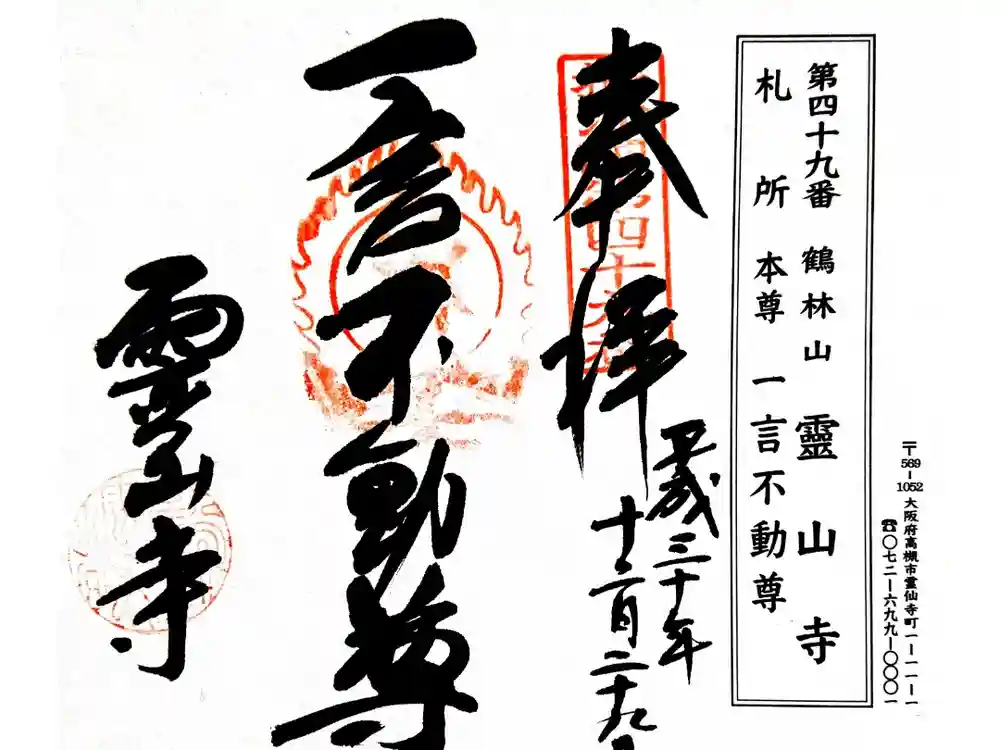 〒569-1052 大阪府高槻市霊仙寺町一-一一-一
☎〇七二-六九九-〇〇〇一
第四十九番 鶴林山 靈山寺
札所本尊 一言不動尊
奉拝
平成三十年
十二月二十九日
一言不動尊
靈山寺